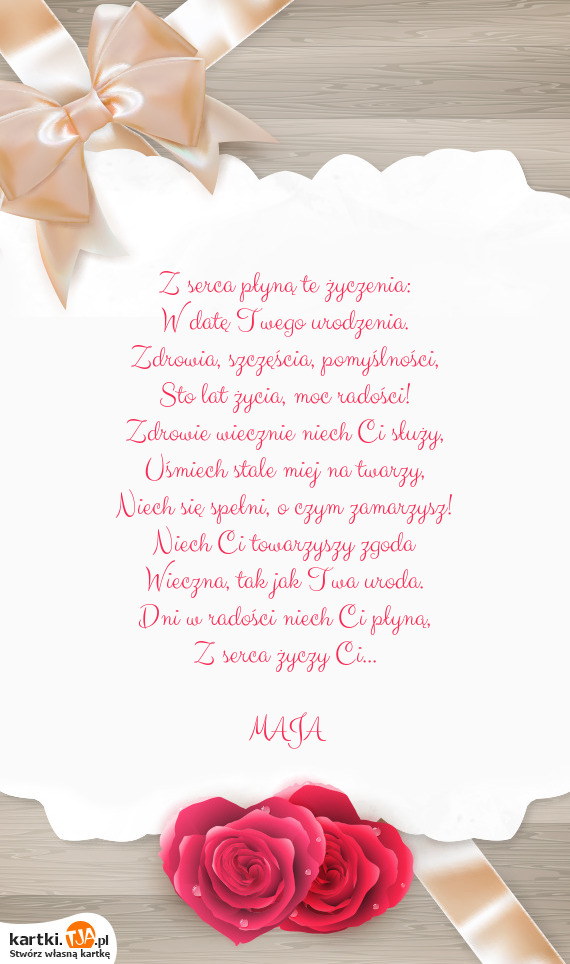 Z serca płyną te życzenia:
W datę Twego urodzenia.
Zdrowia, szczęścia, pomyślności,
Sto lat życia, moc radości!
Zdrowie wiecznie niech Ci służy,
Uśmiech stale miej na twarzy,
Niech się spełni, o czym zamarzysz!
Niech Ci towarzyszy zgoda
Wieczna, tak jak Twa uroda.
Dni w radości niech Ci płyną,
Z serca życzy Ci...
MAJA
kartki.TJA.pl
Stwórz własną kartkę